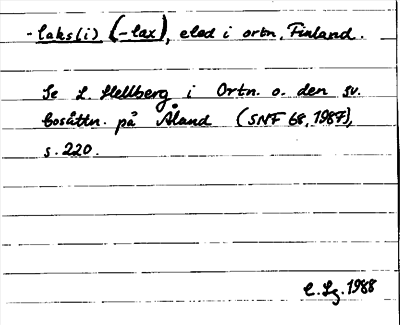 -laks(i) (-lax), eled i ortn. Finland.
Se L. Hellberg i Ortn. o. den sv.
bosättn. på Åland (SNF 68, 1987),
s. 220.
1988